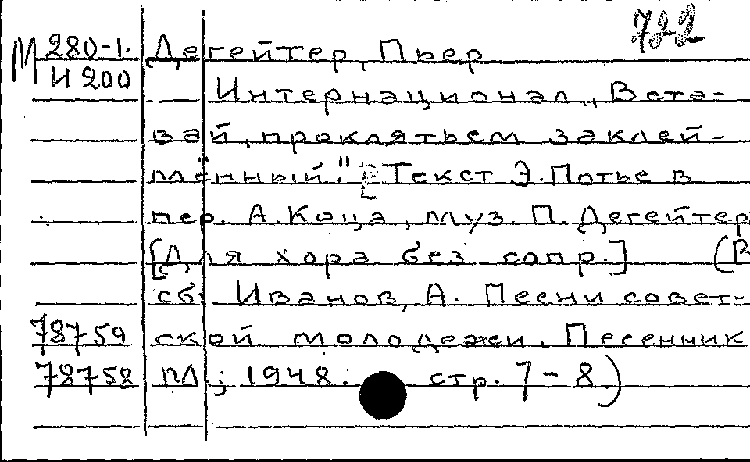 722
М 280-1. Дегейтер, Пьер
И 200 Интернационал „Вста-
вай, проклятьем заклей-
мённый." [Текст Э. Потье в
пер. А. Коца, муз. П. Дегейтер
[Для хора без сопр.] (В
сб: Иванов, А. Песни совет-
78759 ской молодежи. Песенник
78758 пл; 1948. стр. 7-8.)